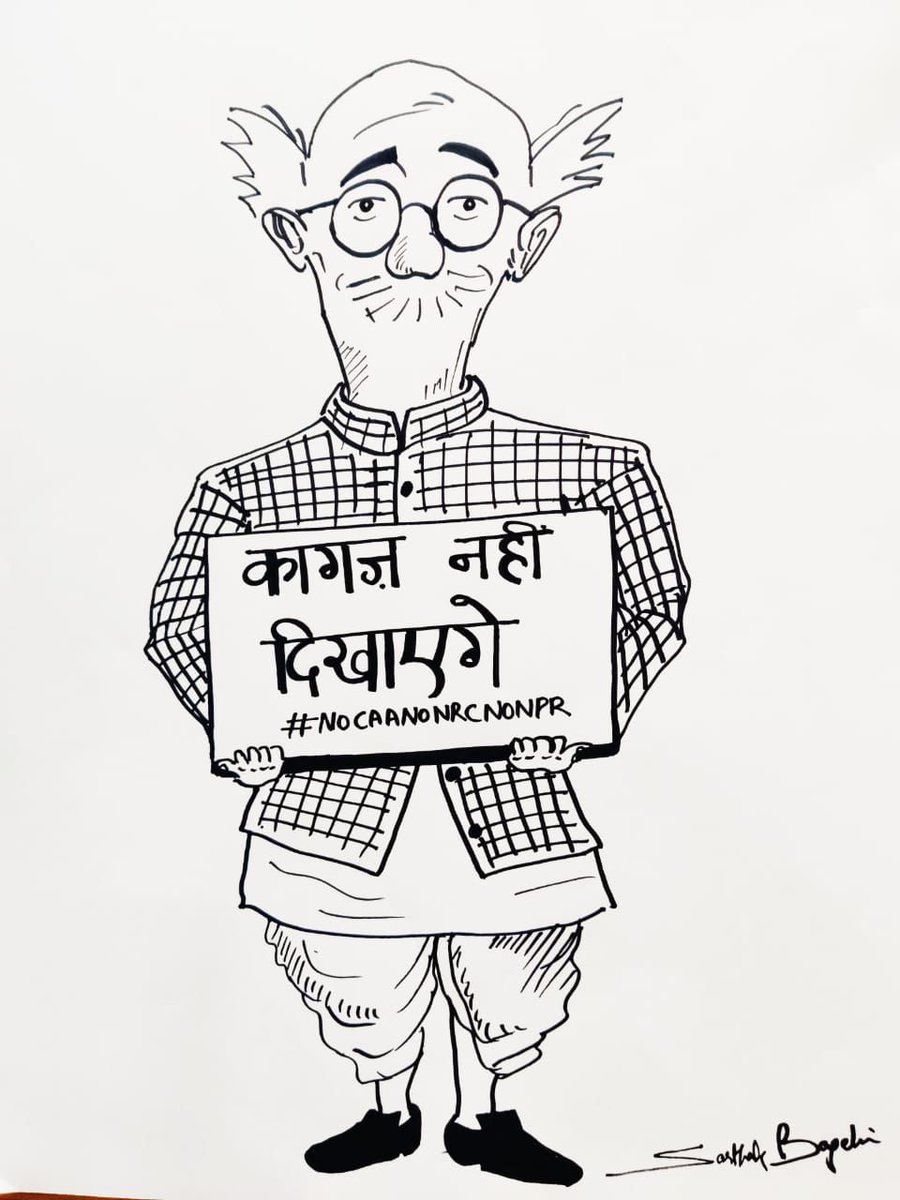 कागज़ नहीं
दिखाएगे
#NOCAANONRCNONPR
Sarthak Bagchi